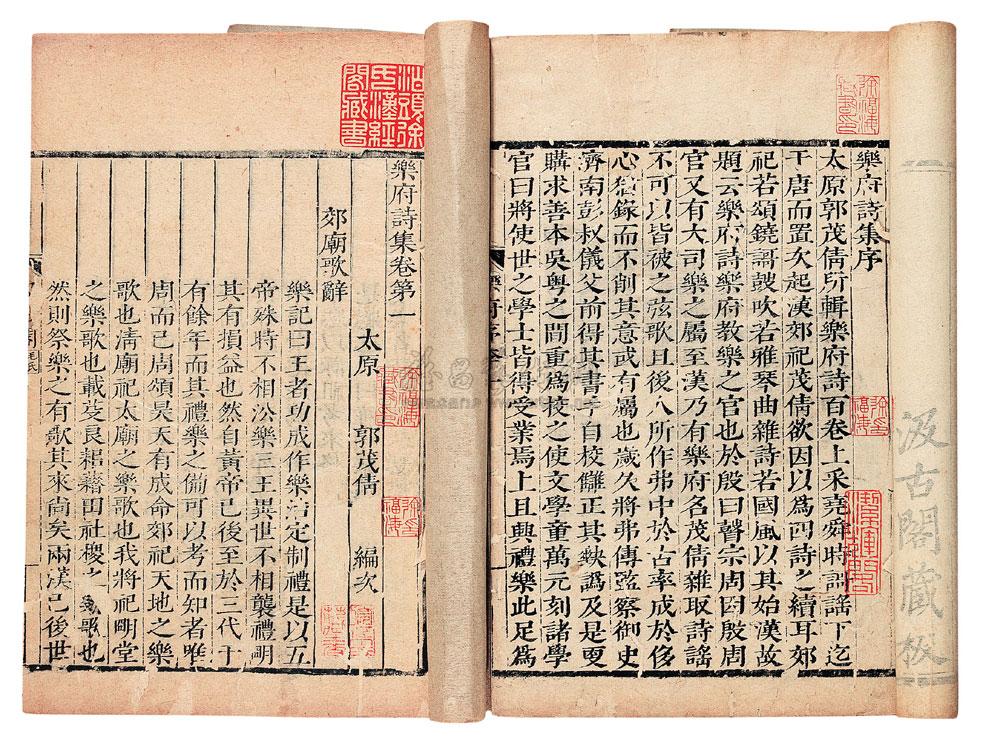 樂府詩集序
太原郭茂倩所輯樂府詩百卷上采堯舜時謌謠下迄
于唐而置次起漢郊祀茂倩欲因以為四詩之續耳郊
祀若頌鐃謌鼓吹若雅琴曲雜詩若國風以其始漢故
題云樂府詩樂府教樂之官也於殷曰瞽宗周因殷周
官又有大司樂之屬至漢乃有樂府名茂倩雜取詩謠
不可以皆被之弦歌且後人所作弗中於古率成於侈
心猶錄而不削其意或有屬也歲久將弗傳監察御史
濟南彭叔儀父前得其書手自校讎正其缺譌及是更
購求善本吳粵之間重為校之使文學童萬元刻諸學
官曰將使世之學士皆得受業焉上且興禮樂此足為
汲古閣藏板
樂府詩集卷第一
太原 郭茂倩 編次
郊廟歌辭
樂記曰王者功成作樂治定制禮是以五
帝殊時不相沿樂三王異世不相襲禮明
其有損益也然自黃帝已後至於三代千
有餘年而其禮樂之備可以考而知者唯
周而已周頌昊天有成命郊祀天地之樂
歌也清廟祀太廟之樂歌也我將祀明堂
之樂歌也載芟良耜藉田社稷之樂歌也
然則祭樂之有歌其來尚矣兩漢已後世